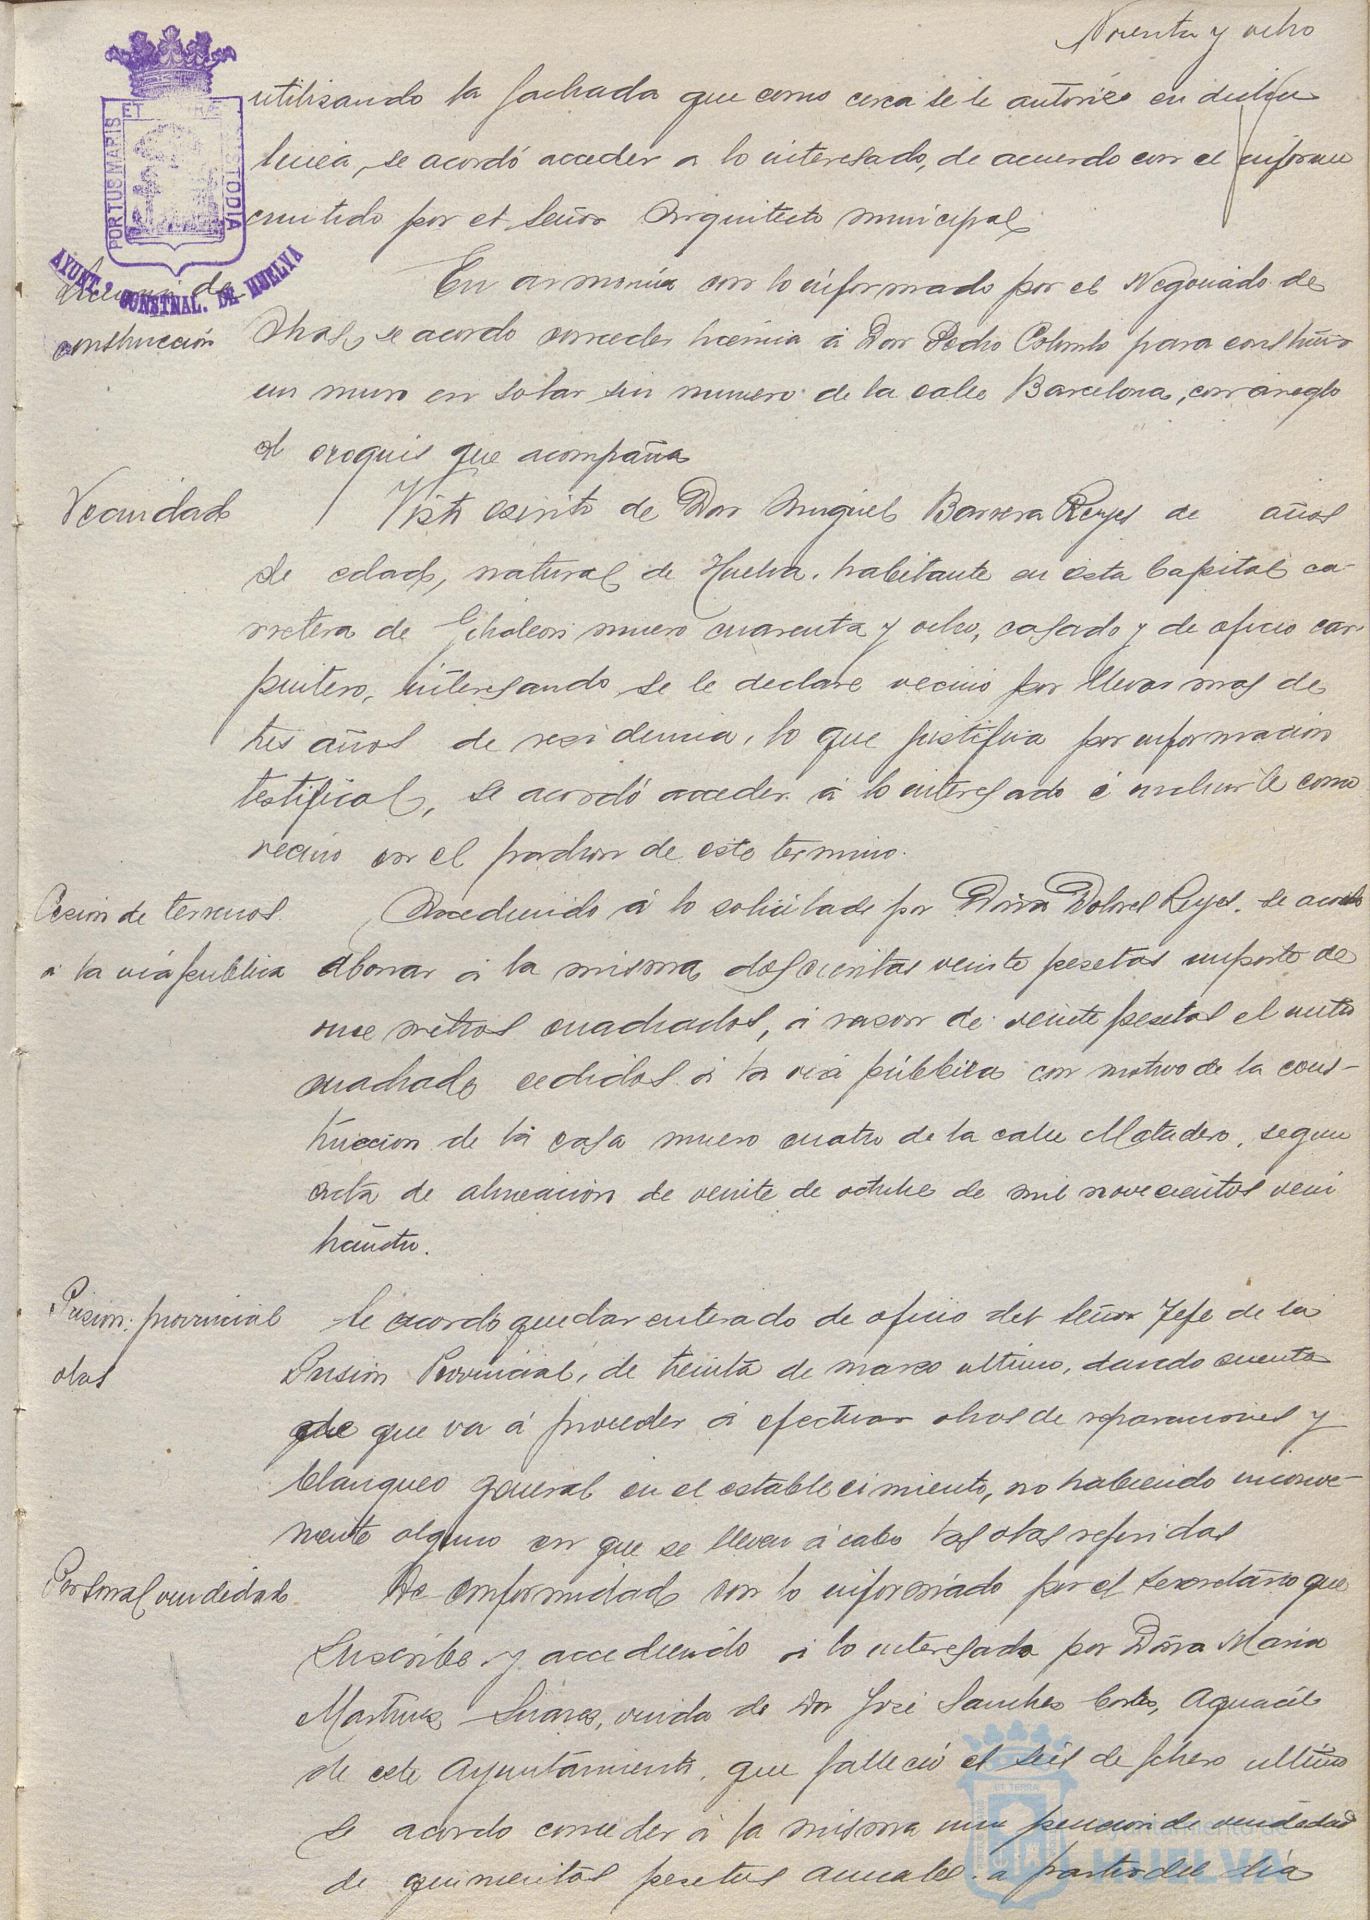 Noventa y ocho
utilizando la fachada que como cerca se le autorizó en dicha
linea, se acordó acceder a lo interesado, de acuerdo con el informe
emitido por el Señor Arquitecto municipal.
PORTUS MARIS ET TERRAE CUSTODIA
AYUNT.º CONSTNAL. DE HUELVA
Licencia de
construcción
En armonia con lo informado por el Negociado de
Obras, se acordo conceder licencia á Don Pedro Colombo para construir
un muro en solar sin numero de la calle Barcelona, con arreglo
al croquis que acompaña
Vecindad
Visto escrito de Don Miguel Barrera Reyes de años
de edad, natural de Huelva, habitante en esta Capital ca-
rretera de Gibraleon numero cuarenta y ocho, casado y de oficio car-
pintero, interesando se le declare vecino por llevar mas de
tres años de residencia, lo que justifica por informacion
testifical, se acordó acceder á lo interesado é incluirle como
vecino en el padron de este termino.
Cesion de terrenos
a la via publica
Accediendo á lo solicitado por Doña Dolores Reyes, se acordo
abonar á la misma doscientas veinte pesetas importe de
once metros cuadrados, á razon de veinte pesetas el metro
cuadrado cedidos á la via pública con motivo de la cons-
truccion de la casa numero cuatro de la calle Matadero, segun
acta de alineacion de veinte de octubre de mil novecientos vein
ticuatro.
Prision provincial
obras
Se acordo quedar enterado de oficio del Señor Jefe de la
Prision Provincial, de treinta de marzo ultimo, dando cuenta
de que va á proceder á efectuar obras de reparaciones y
blanqueo general en el establecimiento, no habiendo inconve-
niente alguno en que se lleven á cabo las obras referidas
Personal viudedad
De conformidad con lo informado por el Secretario que
suscribe y accediendo á lo interesado por Doña Maria
Martinez Suarez, viuda de Don José Sanchez Cortes, Aguacil
de este Ayuntamiento, que falleció el seis de febrero ultimo
se acordo conceder á la misma una pension de viudedad
de quinientas pesetas anuales á partir del dia
Ayuntamiento de
HUELVA